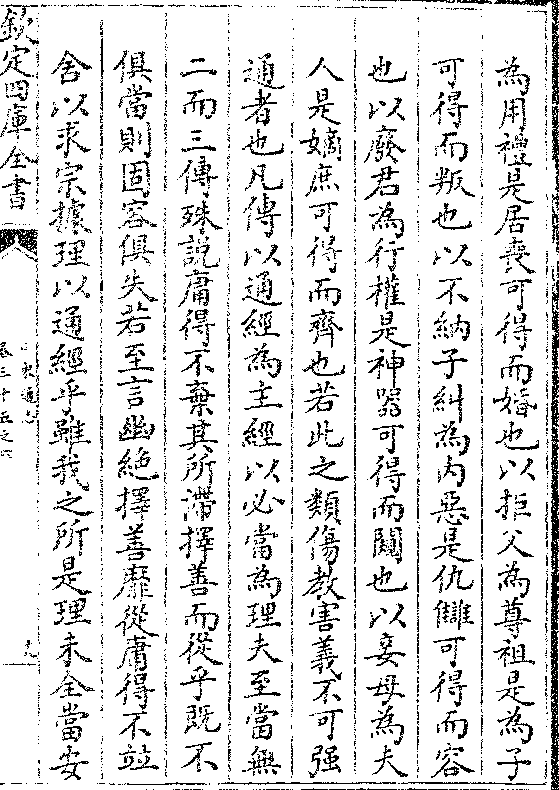 為用禮是居喪可得而婚也以拒父為尊祖是為子
可得而叛也以不納子糾為内惡是仇讎可得而容
也以廢君為行權是神器可得而闚也以妾母為夫
人是嫡庶可得而齊也若此之類傷教害義不可强
通者也凡傳以通經為主經以必當為理夫至當無
二而三傳殊説庸得不棄其所滯擇善而從乎既不
俱當則固容俱失若至言幽絶擇善靡從庸得不竝
舍以求宗據理以通經乎雖我之所是理未全當安
欽定四庫全書